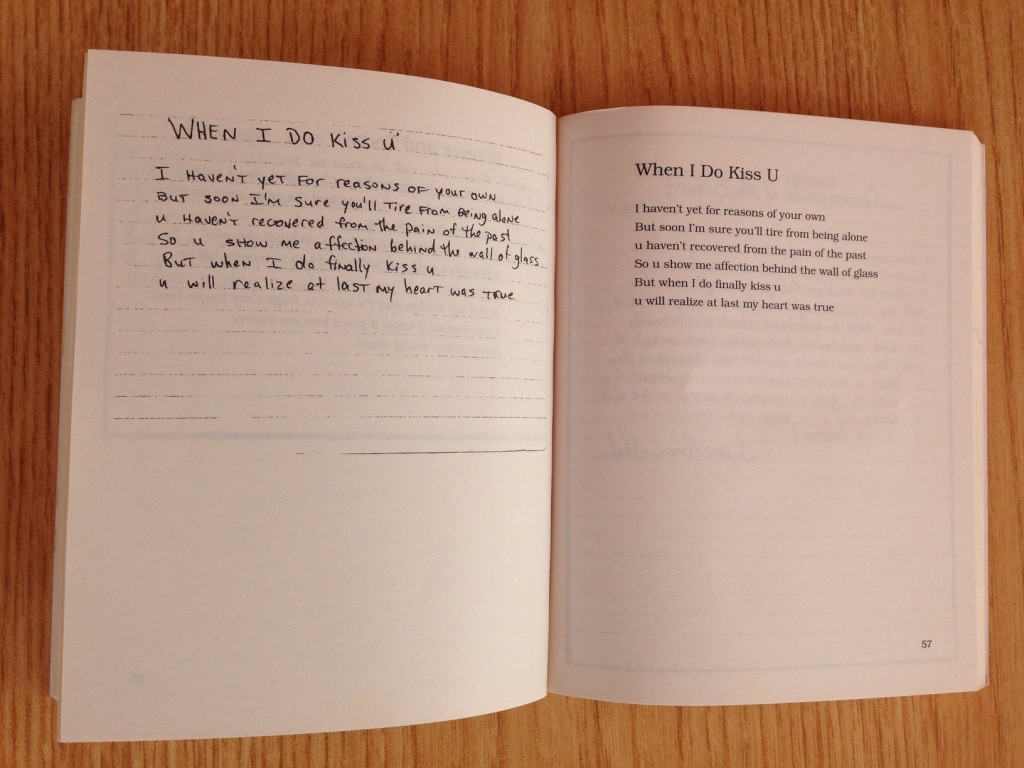 WHEN I DO KISS U
I HAVEN'T YET FOR REASONS OF YOUR OWN
BUT SOON I'M SURE YOU'LL TIRE FROM BEING ALONE
u HAVEN'T RECOVERED from the PAIN of the PAST
SO u SHOW ME AFFECTION BEHIND the WALL of glASS
BUT WHEN I do finAlly Kiss u
u will REALIZE AT LAST MY HEART WAS TRUE
When I Do Kiss U
I haven't yet for reasons of your own
But soon I'm sure you'll tire from being alone
u haven't recovered from the pain of the past
So u show me affection behind the wall of glass
But when I do finally kiss u
u will realize at last my heart was true
57